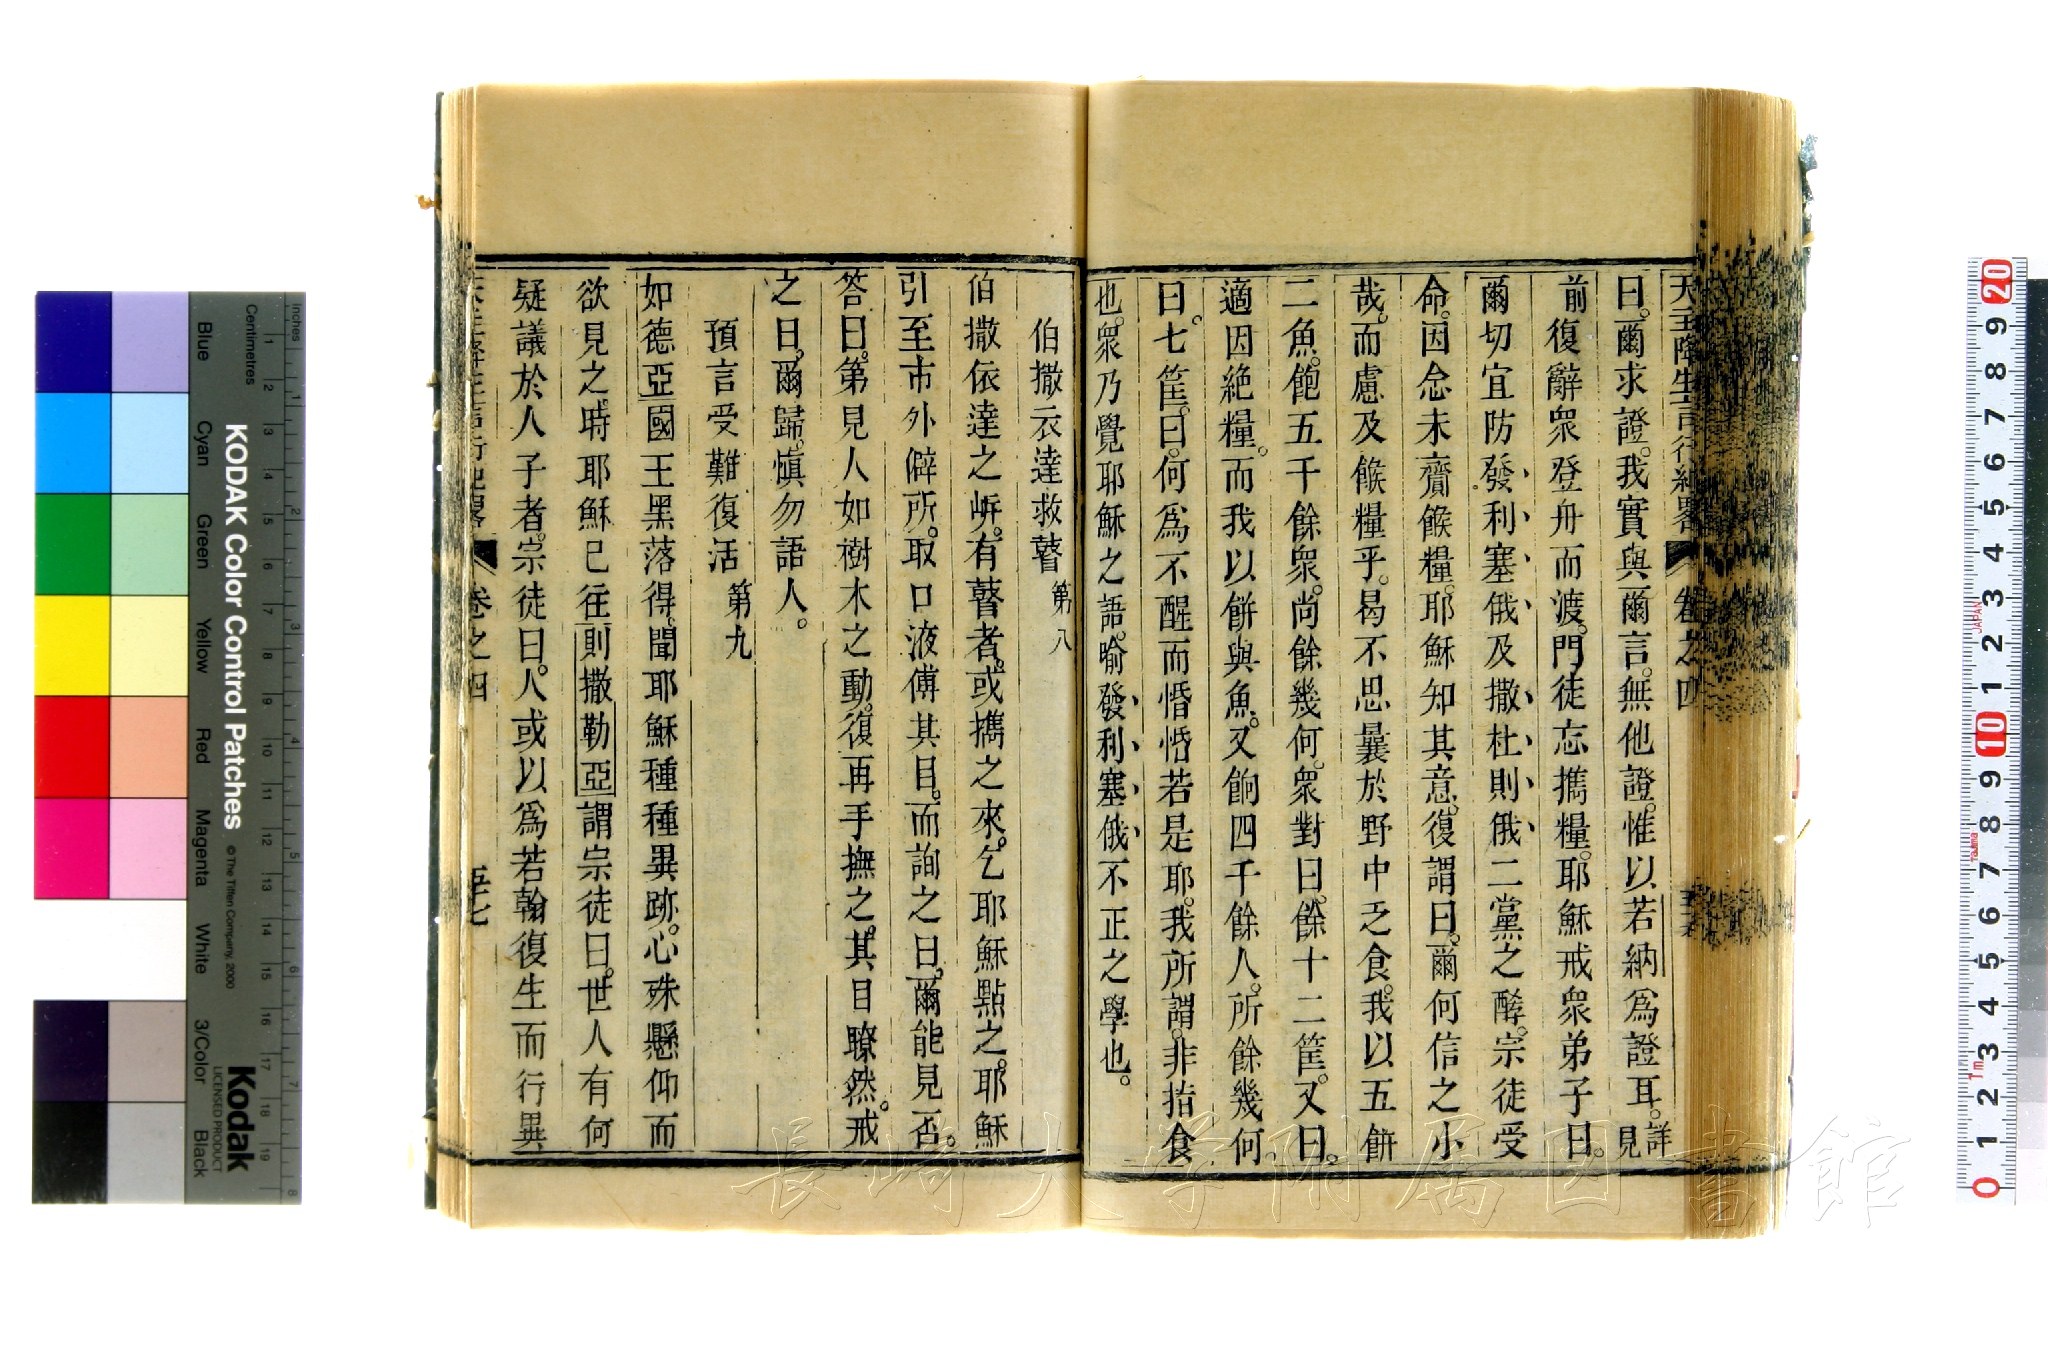 天主降生言行紀畧 卷之四
曰。爾求證。我實與爾言。無他證。惟以若納爲證耳。詳見
前復辭衆登舟而渡。門徒忘攜糧。耶穌戒衆弟子曰。
爾切宜防發利塞俄及撒杜則俄二黨之酵。宗徒受
命。因念未齎餱糧。耶穌知其意。復謂曰。爾何信之小
哉。而慮及餱糧乎。曷不思曩於野中乏食。我以五餅
二魚。飽五千餘衆。尚餘幾何。衆對曰。餘十二筐。又曰。
適因絶糧。而我以餅與魚。又餉四千餘人。所餘幾何。
曰。七筐。曰。何爲不醒而惛惛若是耶。我所謂。非指食
也。衆乃覺耶穌之語。喻發利塞俄不正之學也。
伯撒衣達救瞽 第八
伯撒依達之峅。有瞽者。或攜之來。乞耶穌點之。耶穌
引至市外僻所。取口液傅其目。而詢之曰。爾能見否。
答曰。第見人如樹木之動。復再手撫之。其目瞭然。戒
之曰。爾歸。愼勿語人。
預言受難復活 第九
如德亞國王黑落得。聞耶穌種種異跡。心殊懸仰而
欲見之。時耶穌已往則撒勒亞謂宗徒曰。世人有何
疑議於人子者。宗徒曰。人或以爲若翰復生而行異
天主降生言行紀畧 卷之四 五十七
KODAK Color Control Patches
© The Tiffen Company, 2000
Kodak
LICENSED PRODUCT
Inches
Centimetres
Blue
Cyan
Green
Yellow
Red
Magenta
White
3/Color
Black
長崎大学附属図書館